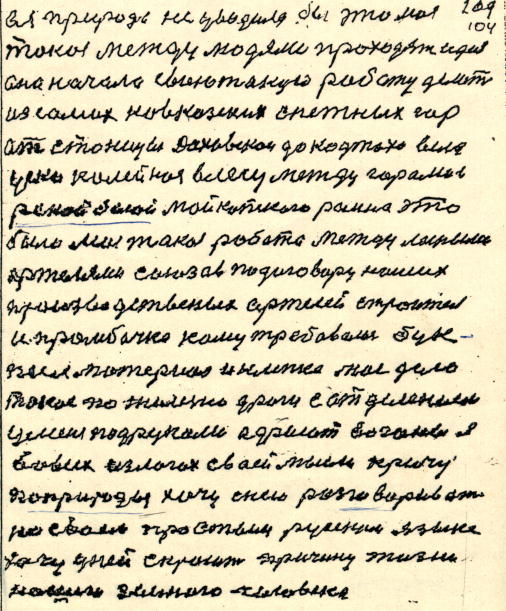 ея природе не увидела бы этомоя 109
такая между людями проходят идея 104
она начала свою такую работу делат
из самих кавказских снежных гор
от станицы Даховской до
цека колейная в лесу между горами
рекой белой майкопского раина это
была моя такая работа между лесными
артелями союзав подоговору наших
производственых артелей строител
и промбачка кому требовался бук
пиломатериал и клепка мое дело
такое по железно дроги с отделением
цемен под руками а дрыот вагоны я
своих излогах своей мыслью кричу
поприроды хочу снею разговариват
на своем простым руским языке
хочу дней скроит причину жизни
нашего земного человека